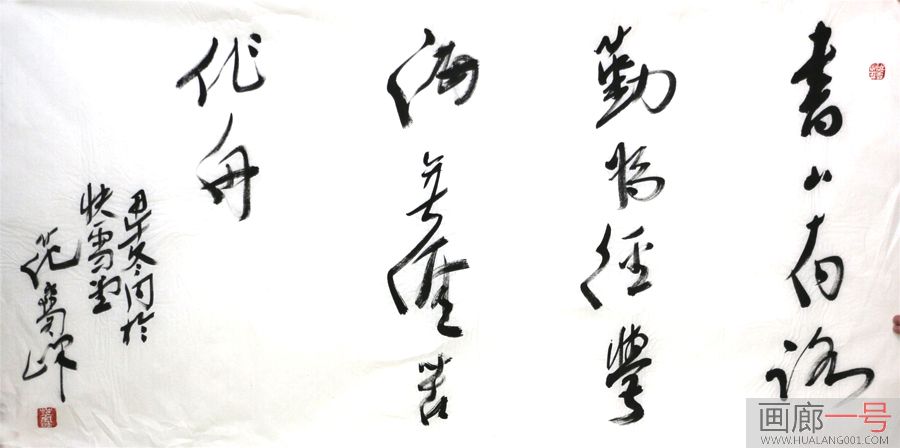 書山有路
勤为徑學
海無涯苦
作舟
甲午冬月於
快雪堂
范
画廊一号
WWW.HUALANG001.COM